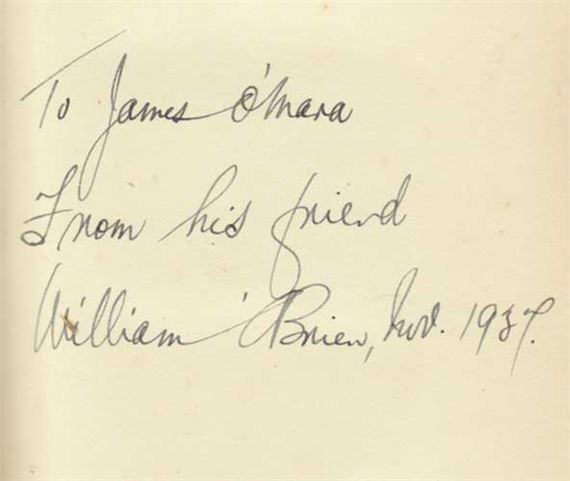 To James O'Mara
From his friend
William O'Brien, Nov. 1937.